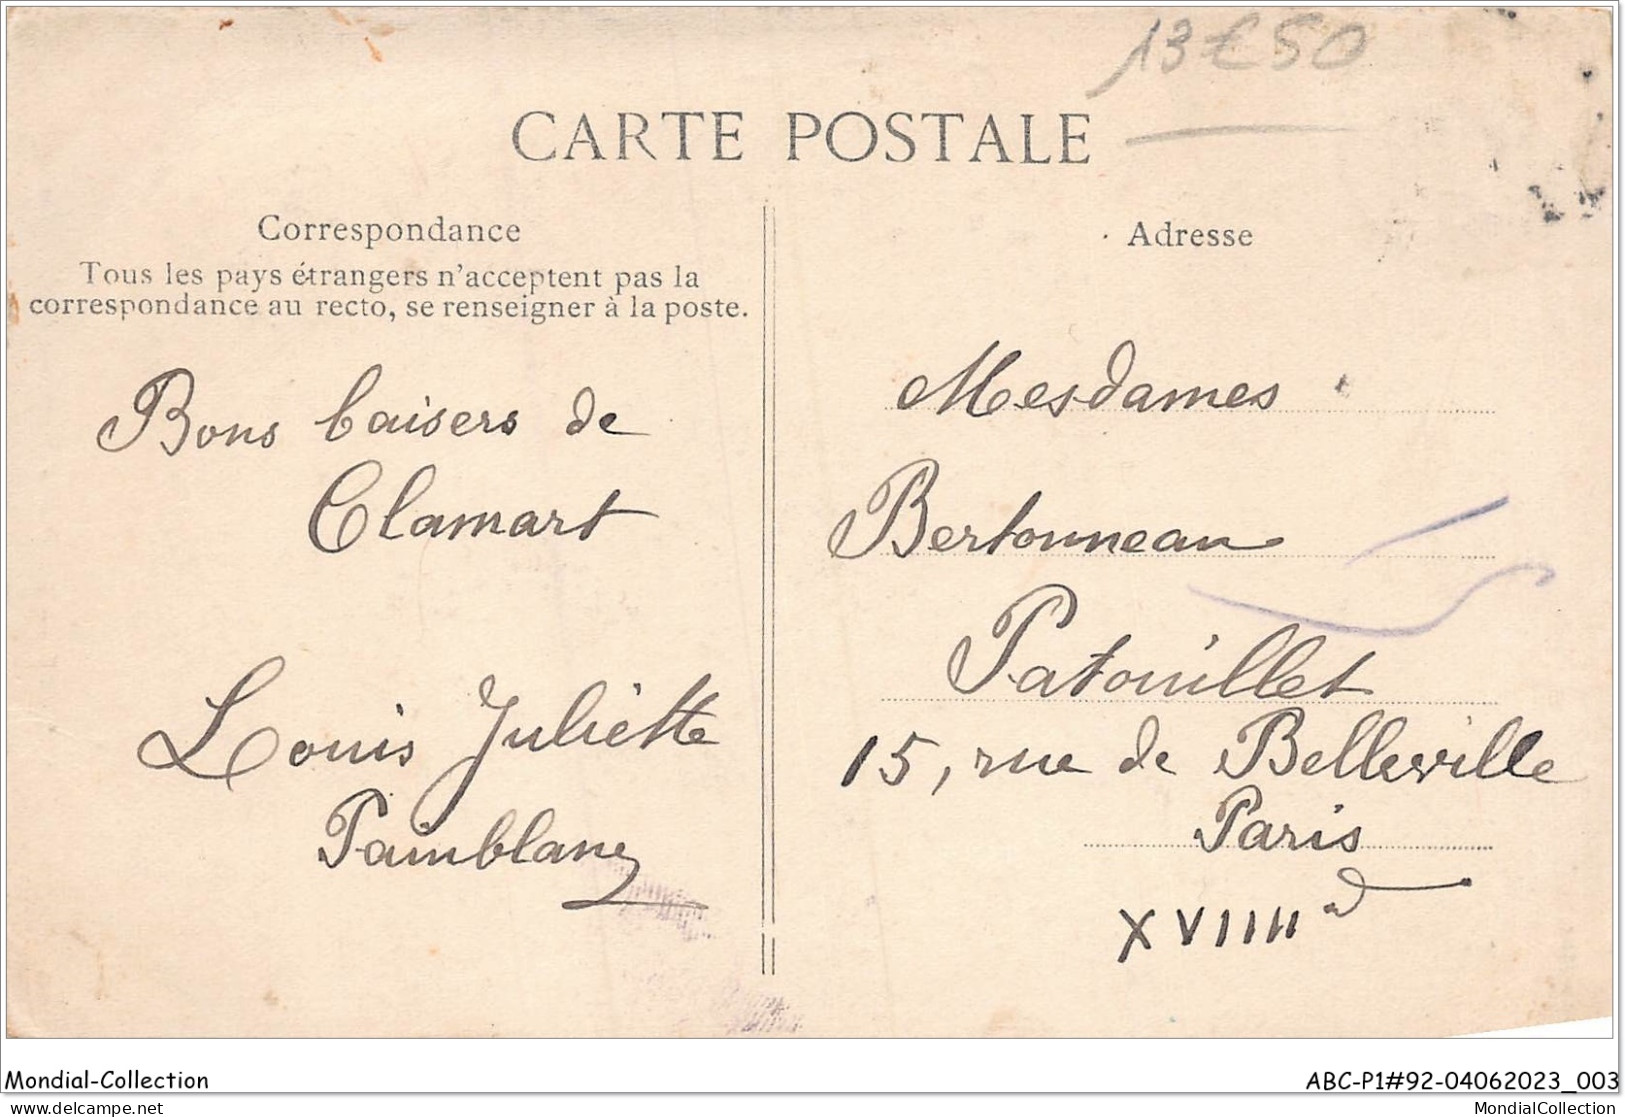 13€50
CARTE POSTALE
Correspondance
Tous les pays étrangers n'acceptent pas la
correspondance au recto, se renseigner à la poste.
Bons baisers de
Clamart
Louis Juliette
Painblanc
Adresse
Mesdames
Bertonneau
Patouillet
15, rue de Belleville
Paris
XVIIII
Mondial-Collection
ABC-P1#92-04062023_003
delcampe.net
MondialCollection